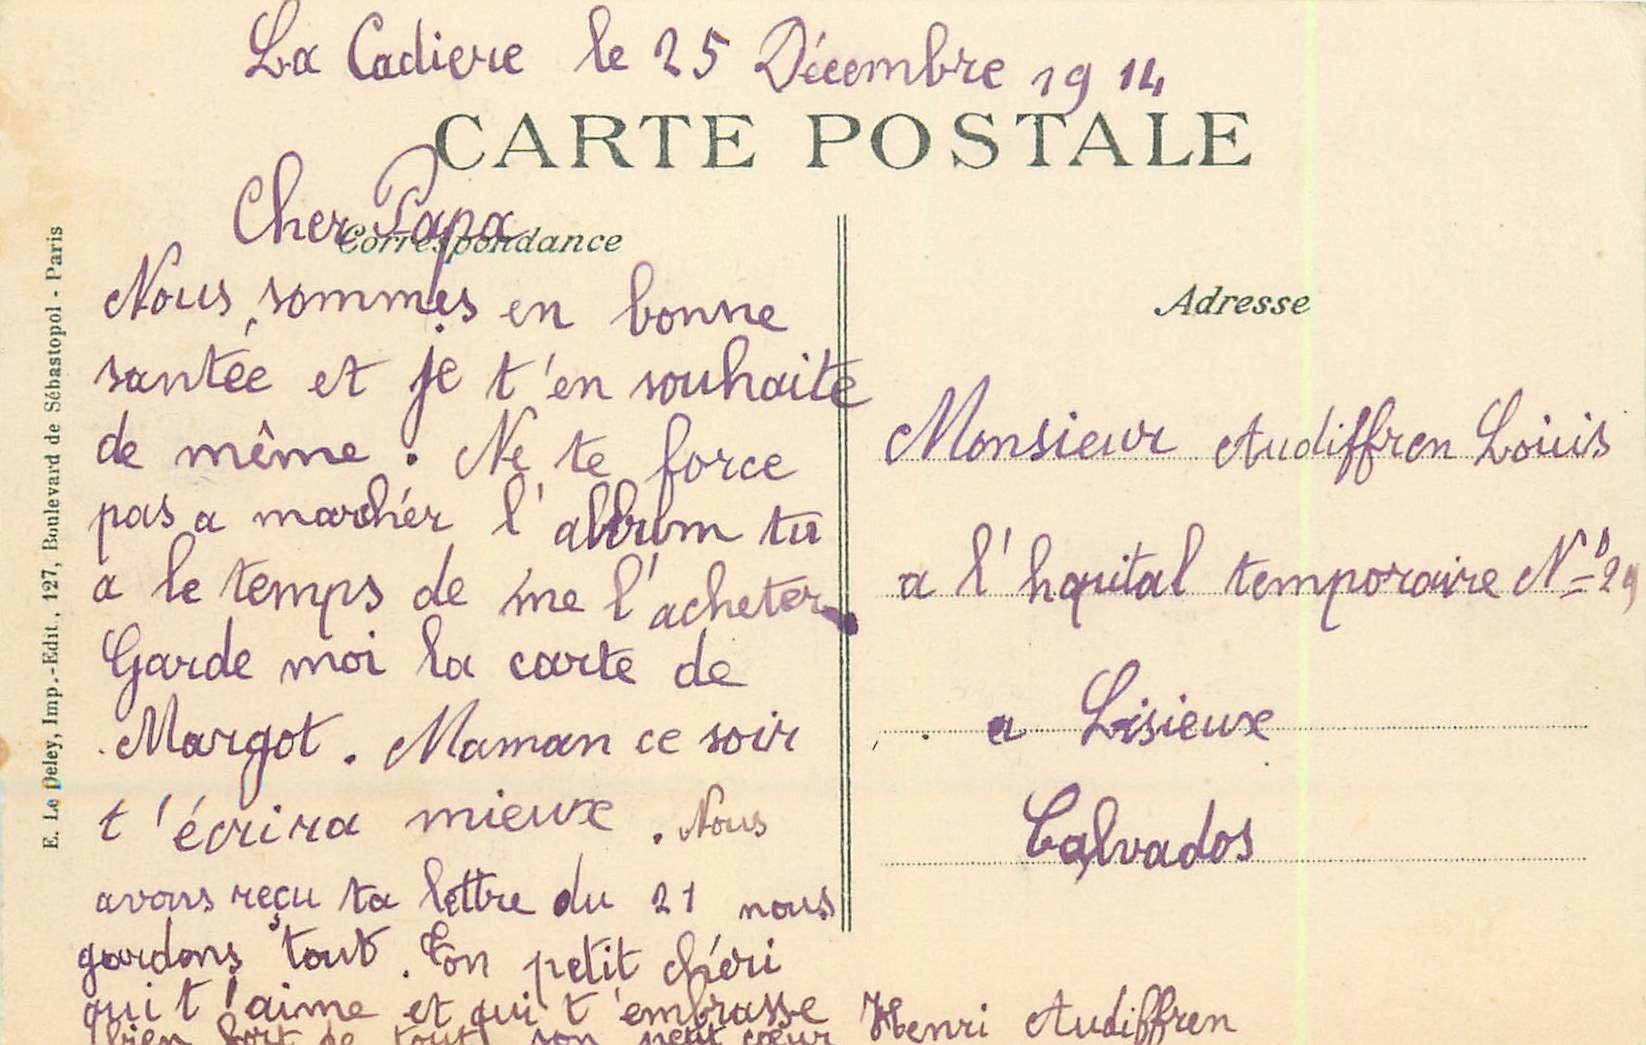 La Cadiere le 25 Décembre 1914
CARTE POSTALE
Cher Papa
Correspondance
Nous sommes en bonne
santée et je t'en souhaite
de même. Ne te force
pas a marcher l'album tu
a le temps de me l'acheter.
Garde moi la carte de
Margot. Maman ce soir
t'écrira mieux. Nous
avons reçu ta lettre du 21 nous
gardons tout. Ton petit chéri
qui t'aime et qui t'embrasse
bien fort de tout son petit cœur
Henri Audiffren
Adresse
Monsieur Audiffren Louis
a l'hopital temporaire Nº 29
a Lisieux
Calvados
E. Le Deley, Imp.-Edit., 127, Boulevard de Sébastopol - Paris